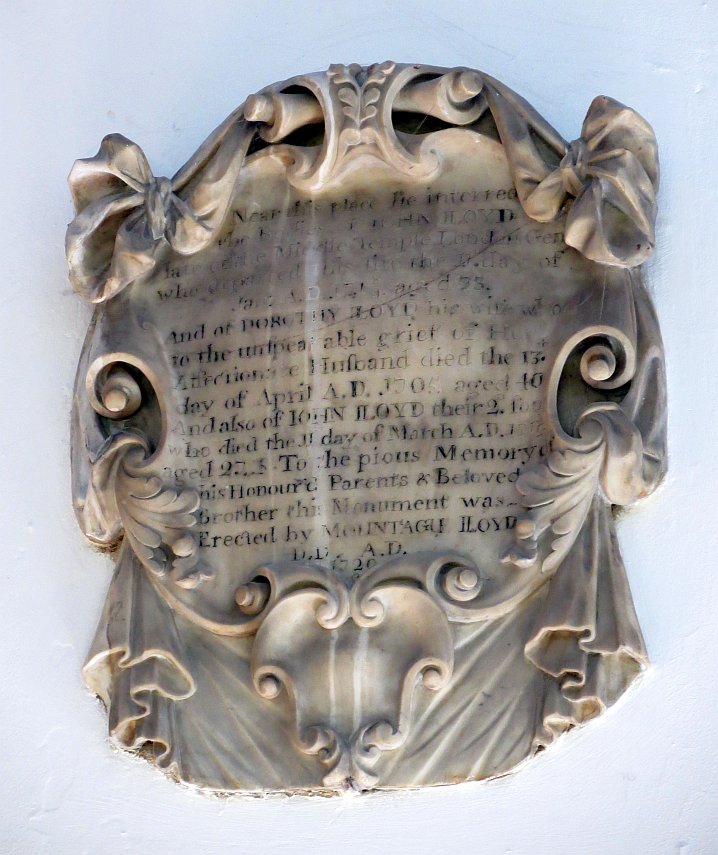 Near this place lie interred
the Bodies of JOHN LLOYD
late of the Middle Temple London Gent
who departed this life the day of
A.D. aged 53.
And of DOROTHY LLOYD his wife who
to the unspeakable grief of Her
Affectionate Husband died the 13.
day of April A.D. 1705 aged 46
And also of IOHN LLOYD their 2. son
who died the day of March A.D.
aged 27. To the pious Memory of
his Honour'd Parents & Beloved
Brother this Monument was
Erected by MOUNTAGUE LLOYD
D.D. A.D.
1720